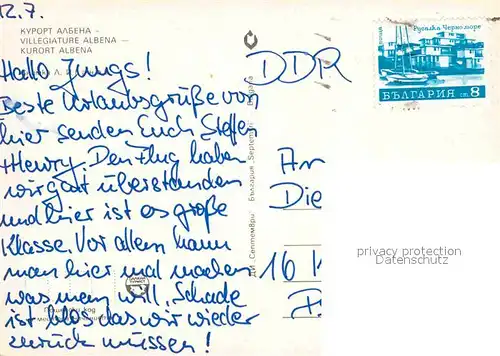 12.7.
КУРОРТ АЛБЕНА -
VILLEGIATURE ALBENA -
KURORT ALBENA
Hallo Jungs!
Beste Urlaubsgrüße von
hier senden Euch Steffen
+Henry. Den Flug haben
wir gut überstanden
und hier ist es große
Klasse. Vor allem kann
man hier mal machen
was man will. Schade
ist blos das wir wieder
zurück müssen!
ДИ „Септември“ България „Septemvri“
DDR
An
Die
16
БЪЛГАРИЯ ст. 8
privacy protection
Datenschutz